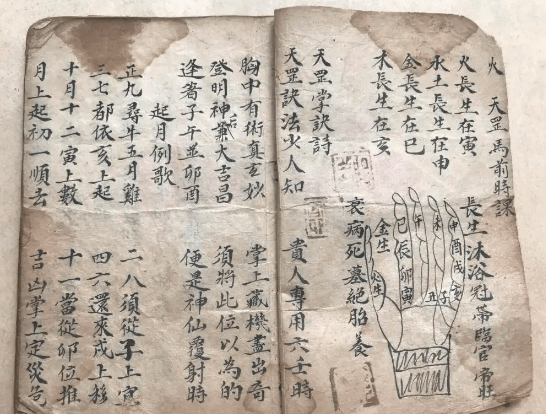 火 天罡馬前時課
火長生在寅 長生沐浴冠帶臨官帝旺
水土長生在申
金長生在巳
木長生在亥
衰病死墓絕胎養
申酉戌亥
未
午
巳辰卯寅
丑子
金生
天罡掌訣詩
天罡訣法少人知 貴人專用六壬時
胸中有術真玄妙 掌上藏機盡出奇
登明神后大吉昌 須將此位以為的
逢着子午並卯酉 便是神仙覆射時
起月例歌
正九尋牛五月雞 二八須從子上宜
三七都依亥上起 四六還來戌上移
十月十二寅上數 十一當從卯位推
月上起初一順去 吉凶掌上定災危